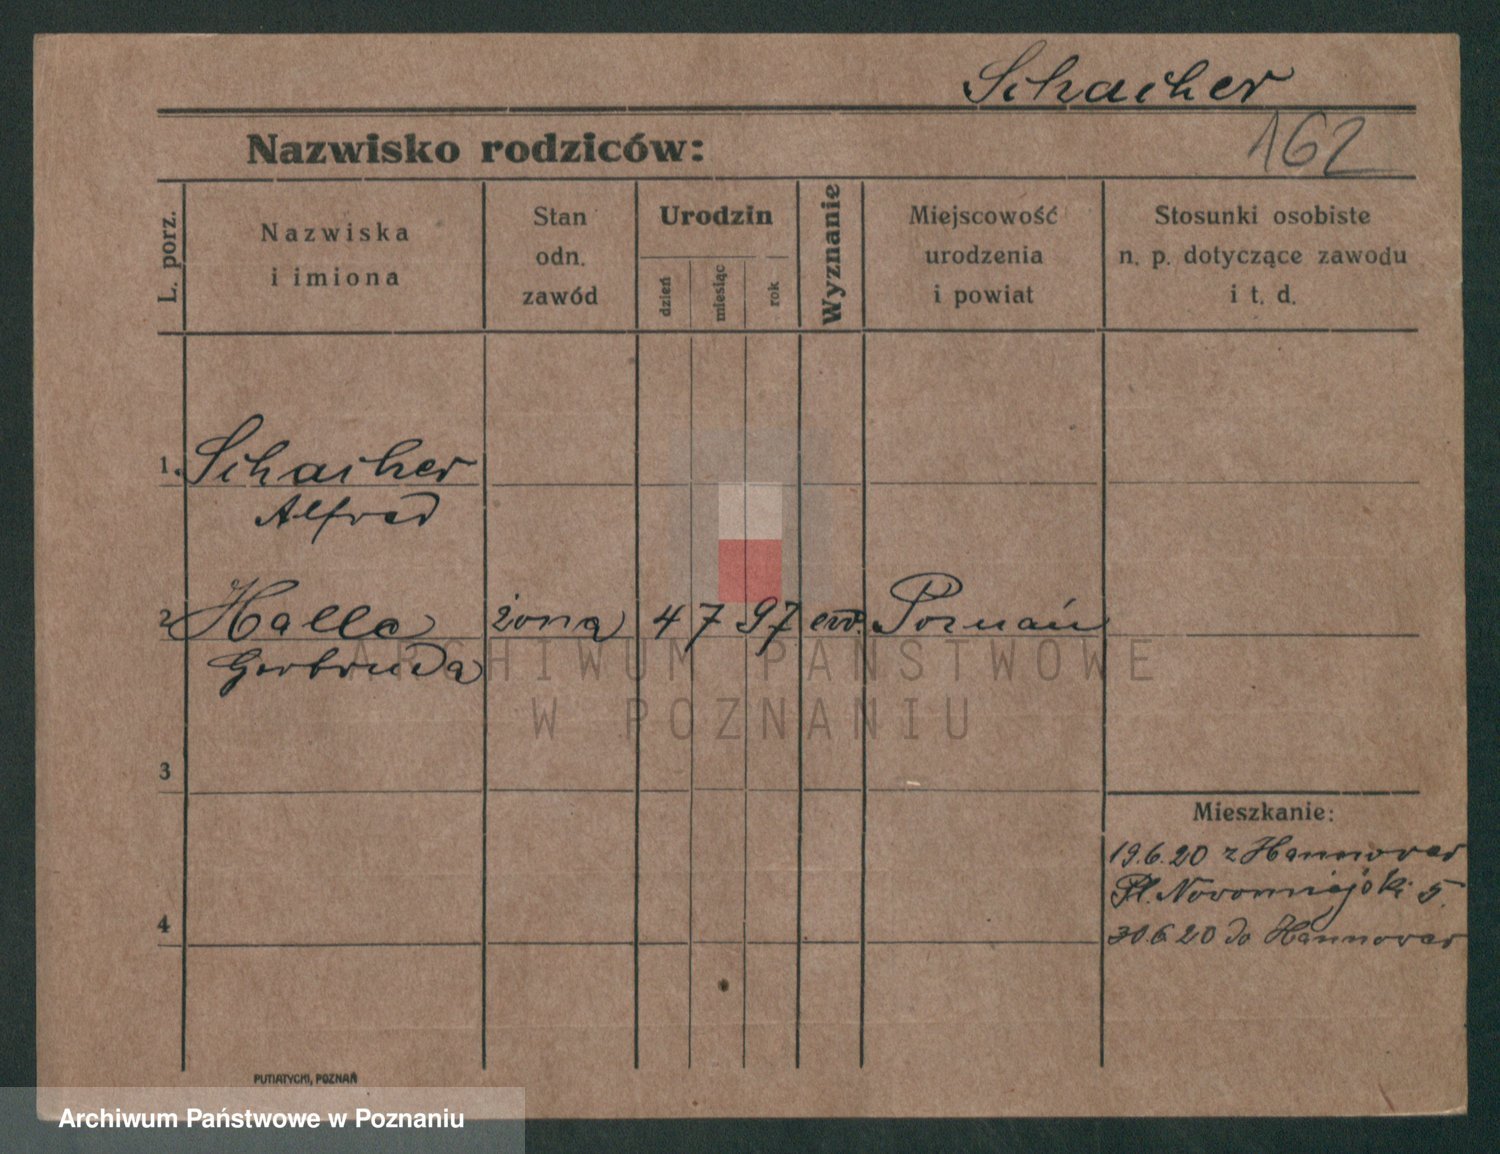 Schaiher
Nazwisko rodziców:
162
L. porz.
Nazwiska
i imiona
Stan
odn.
zawód
Urodzin
dzień
miesiąc
rok
Wyznanie
Miejscowość
urodzenia
i powiat
Stosunki osobiste
n. p. dotyczące zawodu
i t. d.
1. Schaiher
Alfred
2 Halla żona 4 7 97 ew. Poznań
Gertruda
ARCHIWUM PAŃSTWOWE
W POZNANIU
3
Mieszkanie:
19.6.20 z Hannover
Pl. Nowomiejski 5.
4
30.6.20 do Hannover
PUTIATYCKI, POZNAŃ
Archiwum Państwowe w Poznaniu